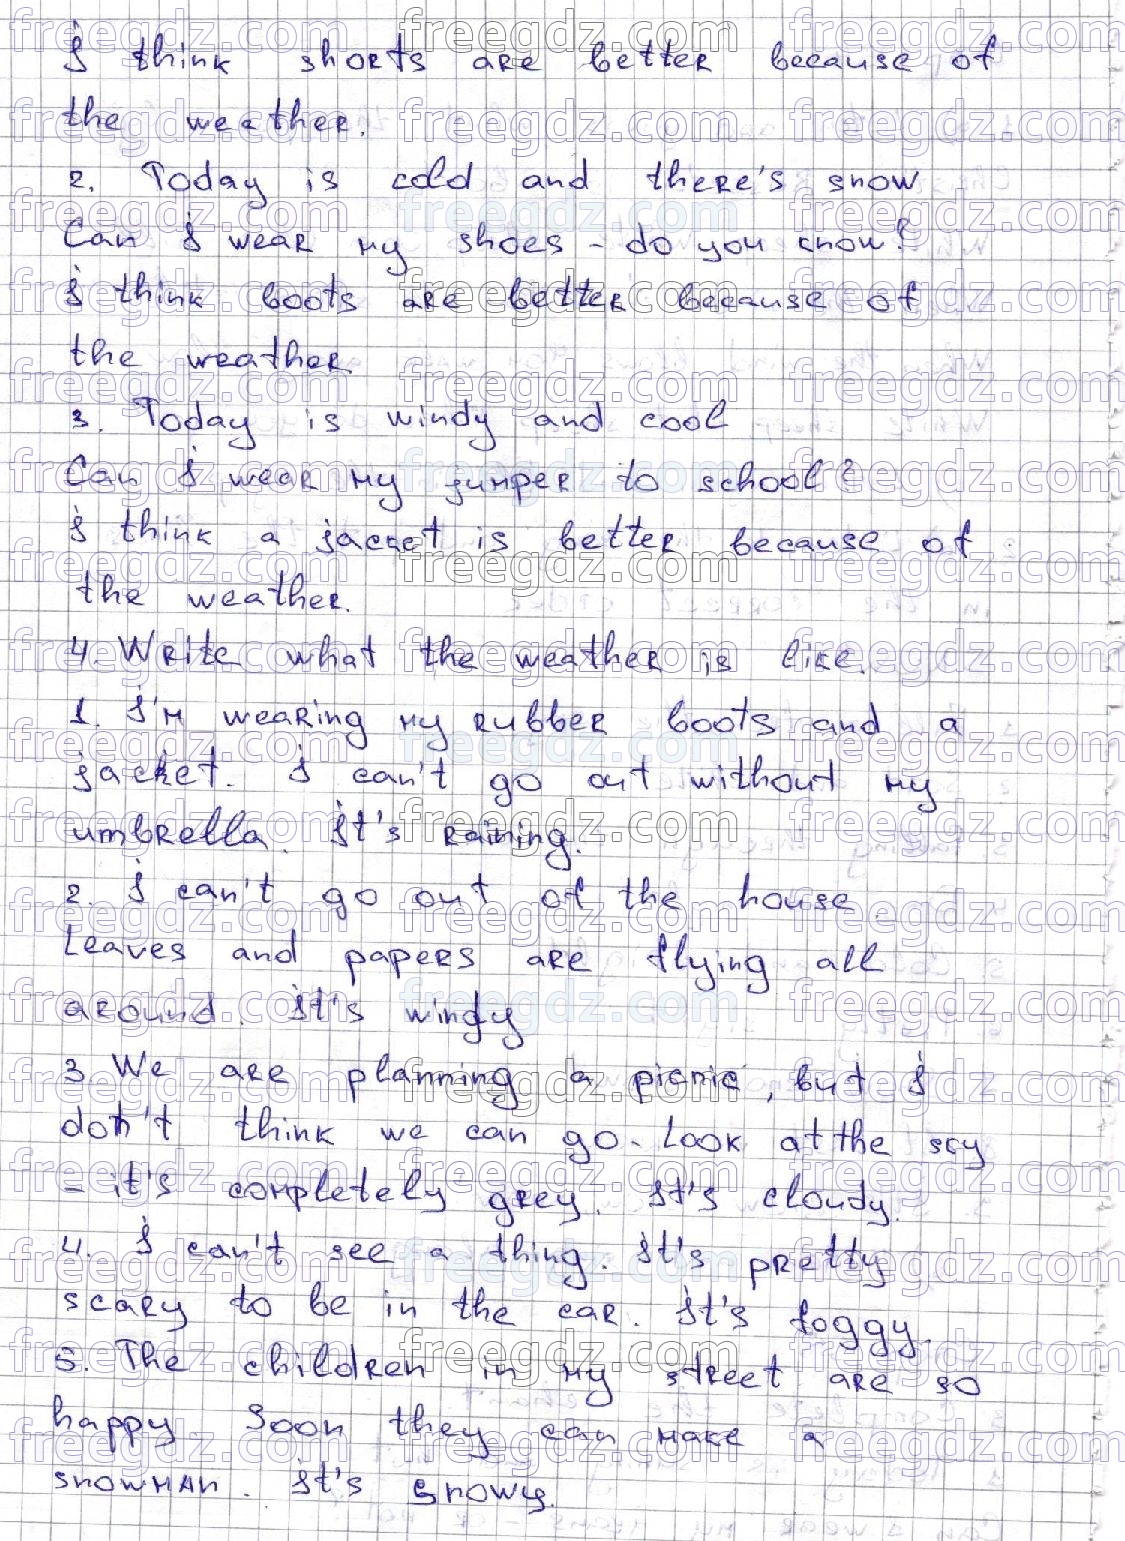 I think shorts are better because of
the weather.
2. Today is cold and there's snow.
Can I wear my shoes - do you know?
I think boots are better because of
the weather.
3. Today is windy and cool
Can I wear my jumper to school?
I think a jacket is better because of
the weather.
4. Write what the weather is like.
1. I'm wearing my rubber boots and a
jacket. I can't go out without my
umbrella. It's raining.
2. I can't go out of the house.
Leaves and papers are flying all
around. It's windy
3. We are planning a picnic, but I
don't think we can go. Look at the sky
- it's completely grey. It's cloudy.
4. I can't see a thing. It's pretty
scary to be in the car. It's foggy.
5. The children in my street are so
happy. Soon they can make a
snowman. It's snowy.
freegdz.com